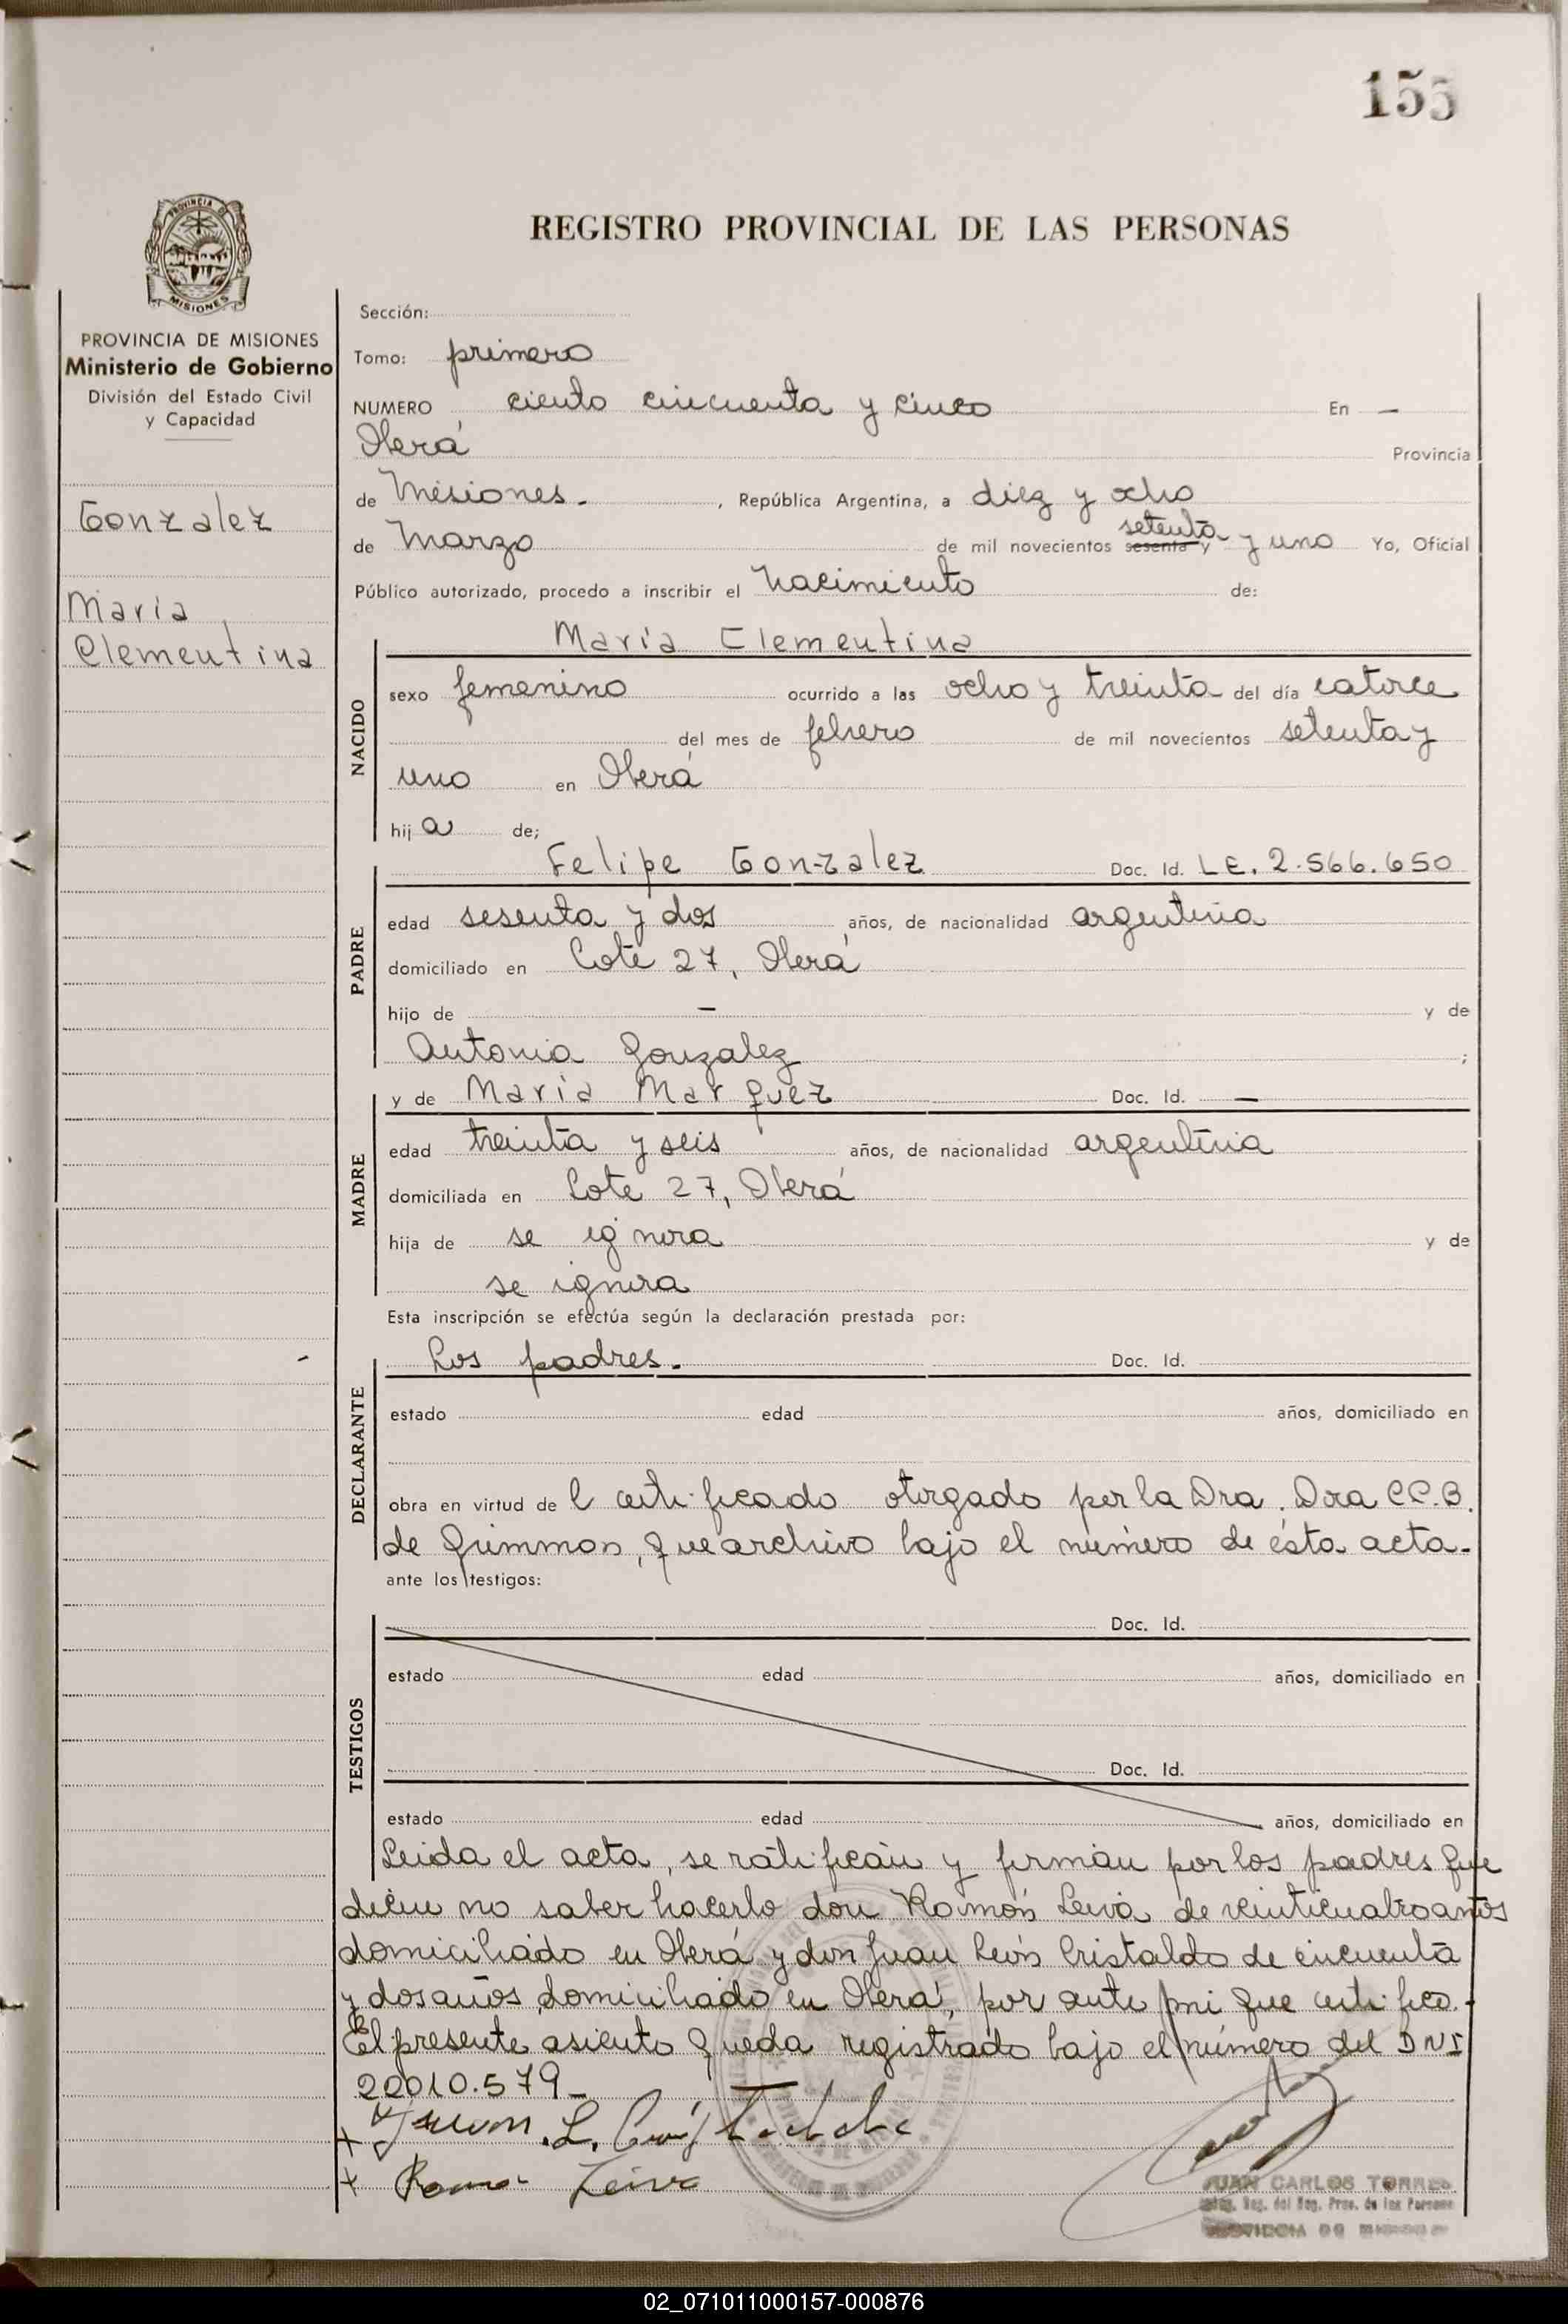 155
PROVINCIA DE
MISIONES
REGISTRO PROVINCIAL DE LAS PERSONAS
PROVINCIA DE MISIONES
Ministerio de Gobierno
División del Estado Civil
y Capacidad
Gonzalez
María
Clementina
Sección:
Tomo: primero
NUMERO ciento cincuenta y cinco En —
Oberá Provincia
de Misiones. , República Argentina, a diez y ocho
setenta
de Marzo de mil novecientos sesenta y y uno Yo, Oficial
Público autorizado, procedo a inscribir el Nacimiento de:
NACIDO
María Clementina
sexo femenino ocurrido a las ocho y treinta del día catorce
del mes de febrero de mil novecientos setenta y
uno en Oberá
hij a de;
PADRE
Felipe Gonzalez Doc. Id. LE. 2.566.650
edad sesenta y dos años, de nacionalidad argentina
domiciliado en Lote 27, Oberá
hijo de — y de
Antonia Gonzalez ;
MADRE
y de María Marquez Doc. Id. —
edad treinta y seis años, de nacionalidad argentina
domiciliada en Lote 27, Oberá
hija de se ignora y de
se ignora
Esta inscripción se efectúa según la declaración prestada por:
DECLARANTE
Los padres. Doc. Id.
estado edad años, domiciliado en
obra en virtud de l certificado otorgado por la Dra. Dora C.C.B.
de que archivo bajo el número de ésta acta.
ante los testigos:
TESTIGOS
Doc. Id.
estado edad años, domiciliado en
Doc. Id.
estado edad años, domiciliado en
Leida el acta, se ratifican y firman por los padres que
dicen no saber hacerlo don Ramón Leiva de veinticuatro años
domiciliado en Oberá y don Juan León Cristaldo de cincuenta
y dos años domiciliado en Oberá, por ante mi que certifico.-
El presente asiento queda registrado bajo el número del DNI
22010.579_
Juan. L.
Ramon Leiva
JUAN CARLOS TORRES
Reg. del Reg. Prov. de las Personas
02_071011000157-000876